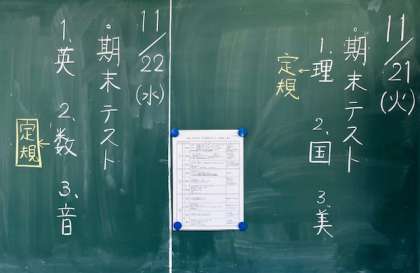 11/21(火)
・期末テスト
1.理
定規
2.国
3.美
11/22(水)
・期末テスト
1.英
2.数
定規
3.音